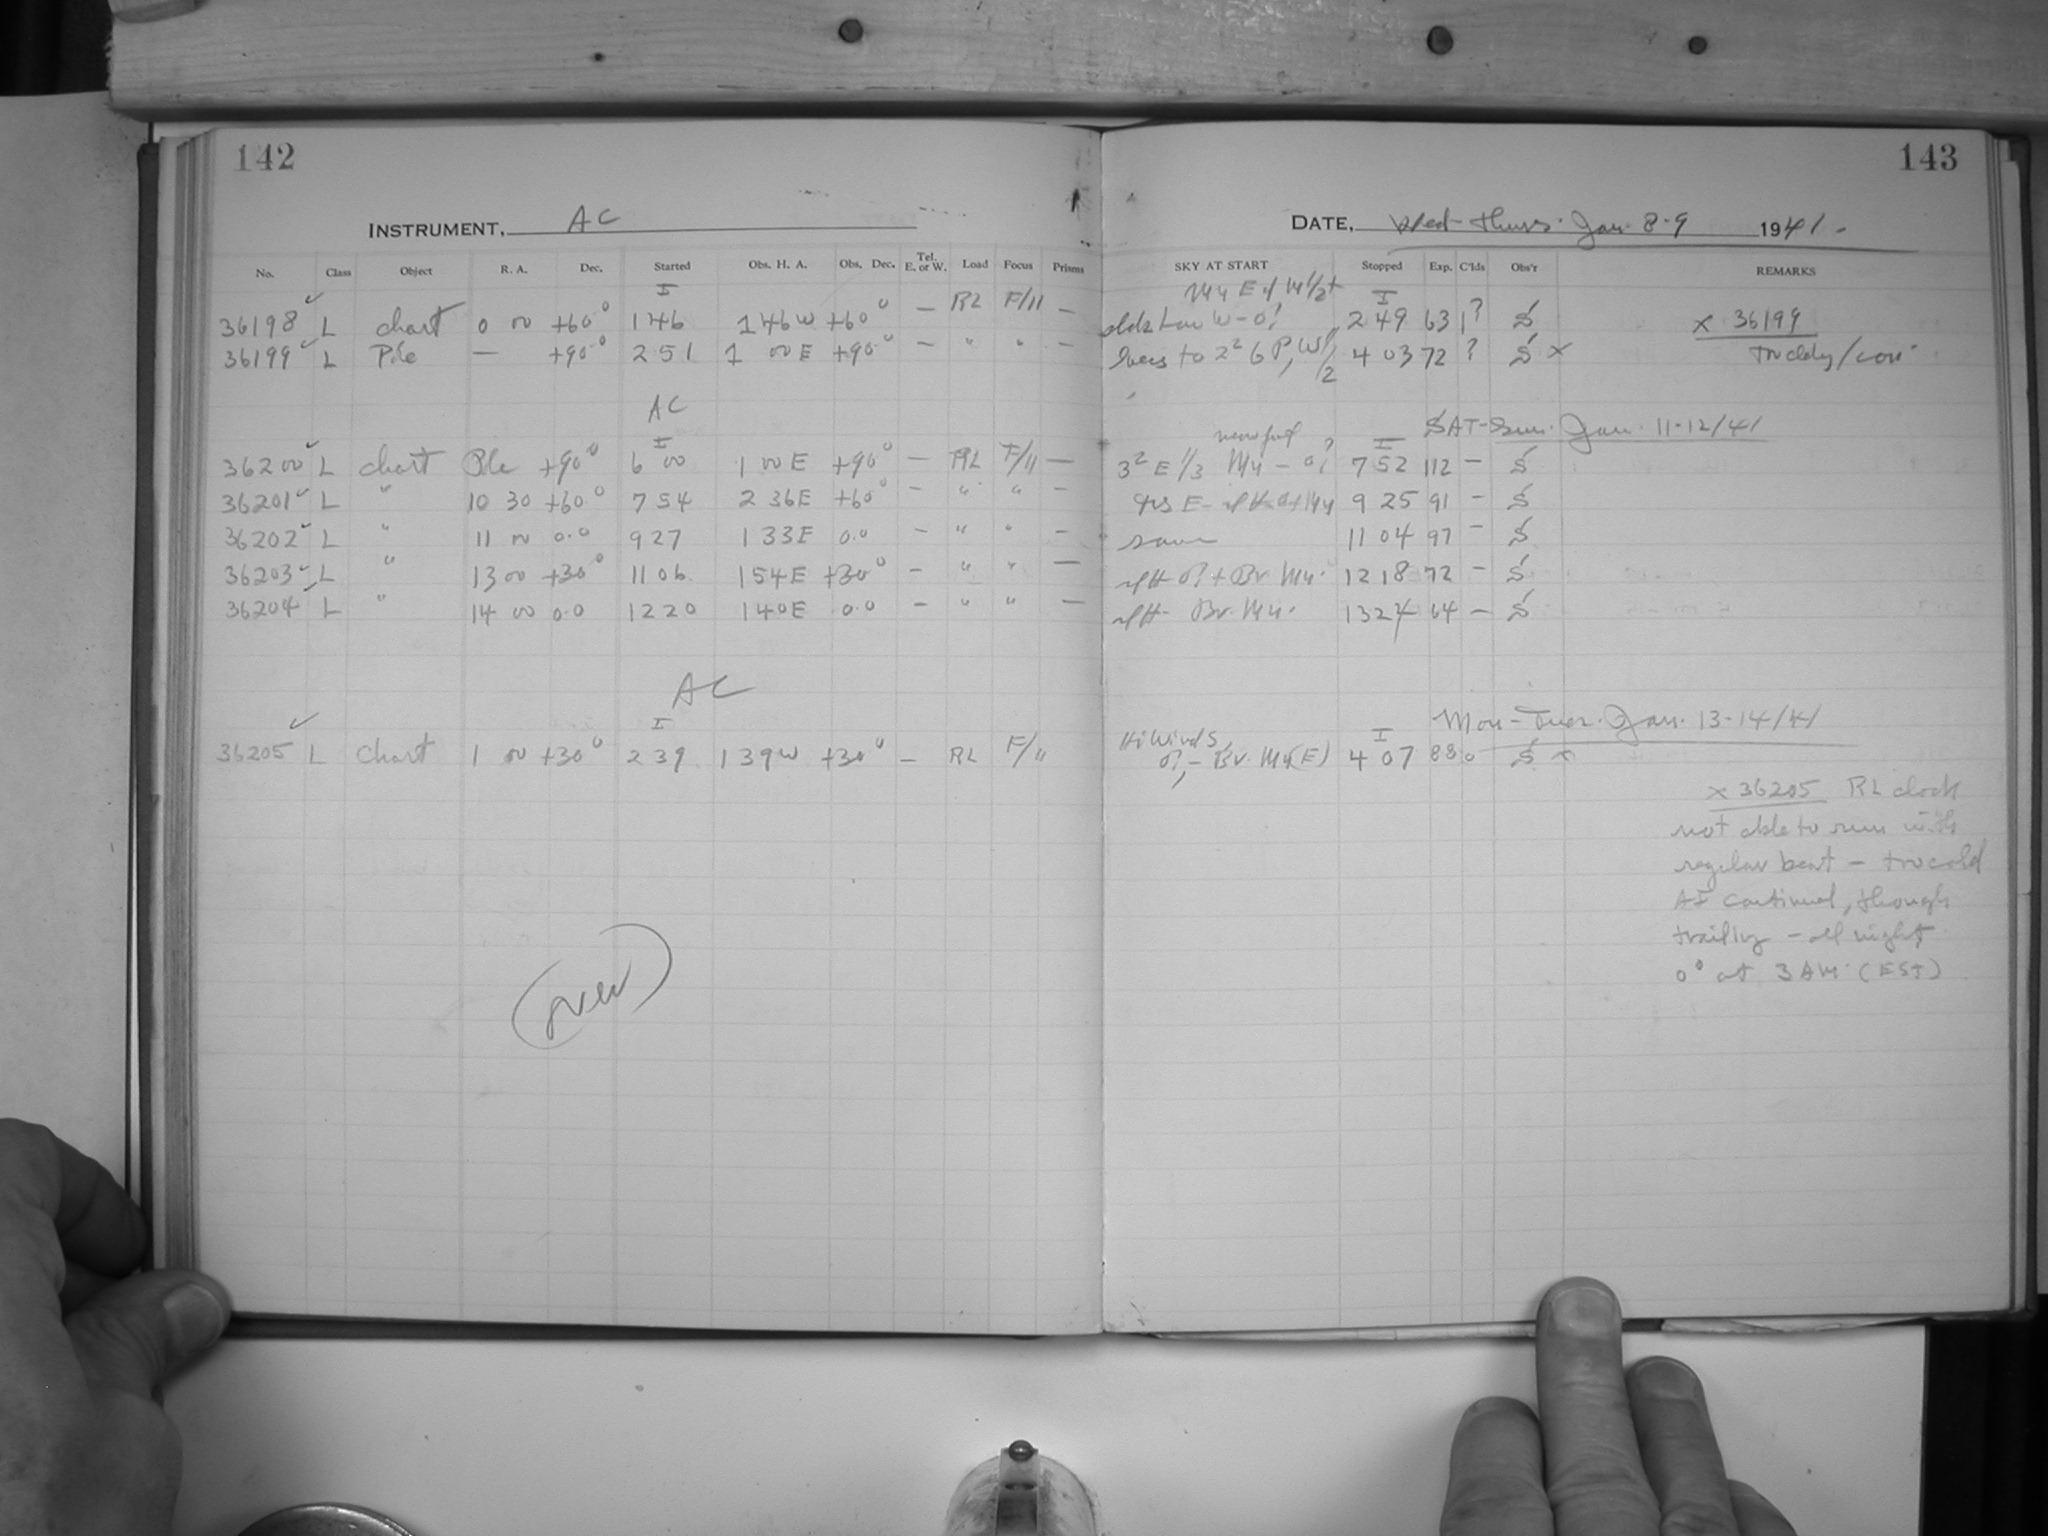 142
143
INSTRUMENT, AC
DATE, Wed-Thurs. Jan. 8-9 1941.
No. Class Object R. A. Dec. Started Obs. H. A. Obs. Dec. Tel. E. or W. Load Focus Prisms SKY AT START Stopped Exp. C'lds Obs'r REMARKS
I I
36198 ✓ L chart 0 00 +60° 1 46 1 46 W +60° — RL F/11 — W-0? 2 49 63 1? S x 36199
36199 ✓ L Pole — +90° 2 51 1 00 E +90° — " " — to 2² 4 03 72 ? S x
AC
SAT-Sun. Jan. 11-12/41
I I
36200 ✓ L chart Pole +90° 6 00 1 00 E +90° — RL F/11 — 3² E 1/3 7 52 112 — S
36201 ✓ L " 10 30 +60° 7 54 2 36 E +60° — " " — E- 9 25 91 — S
36202 ✓ L " 11 00 0.0 9 27 1 33 E 0.0 — " " — same 11 04 97 — S
36203 ✓ L " 13 00 +30° 11 06 1 54 E +30° — " " — + Br. My. 12 18 72 — S
36204 ✓ L " 14 00 0.0 12 20 1 40 E 0.0 — " " — Br. My. 13 24 64 — S
AC
Mon-Tues. Jan. 13-14/41
I Hi Winds, I
36205 ✓ L Chart 1 00 +30° 2 39 1 39 W +30° — RL F/11 0?,- Br. My (E) 4 07 88 0 S x
x 36205 RL clock
not able to run with
regular beat — too cold
AI continued, though
trailing — all night
0° at 3 AM (EST)
(over)